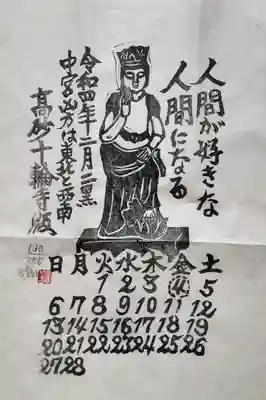 人間が好きな
人間になる
令和四年二月二黒
中宮凶方は東北と西南
髙砂十輪寺版
日 月 火 水 木 金 土
1 2 3 5
6 7 8 9 10 11 12
13 14 15 16 17 18 19
20 21 22 23 24 25 26
27 28